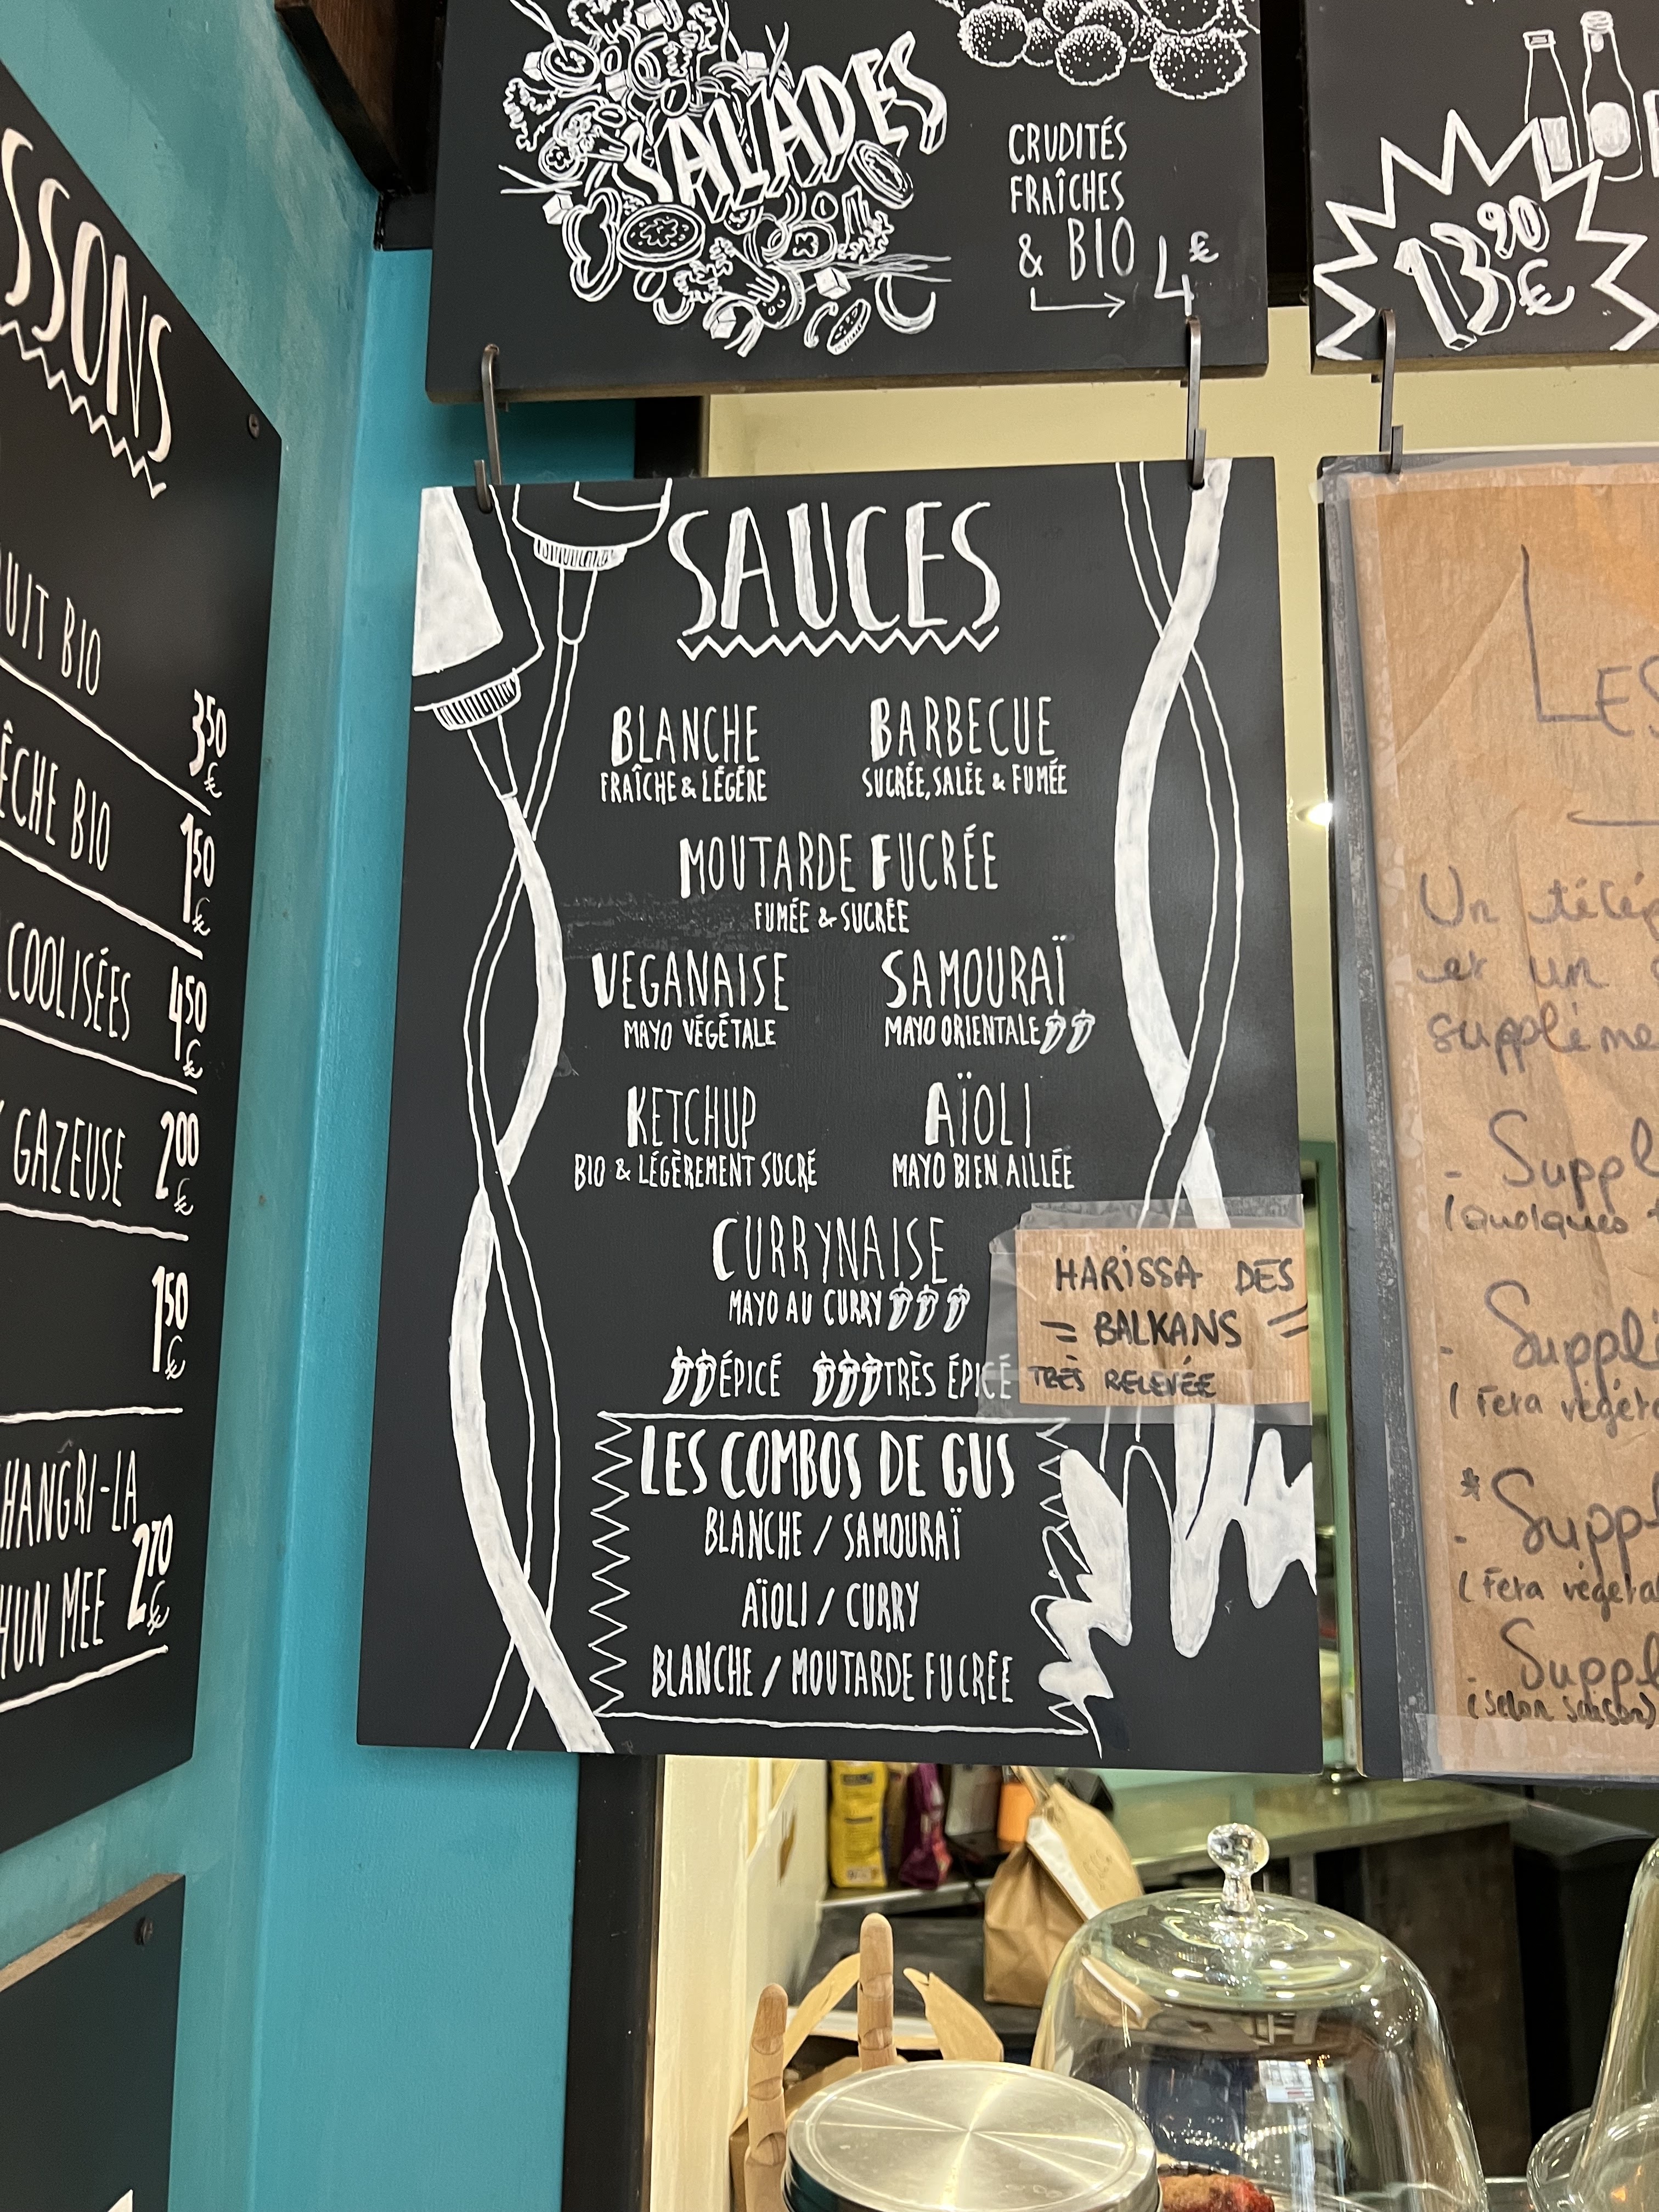 SSONS
UIT BIO
3,50
€
ÊCHE BIO
1,50
€
COOLISÉES
4,50
€
GAZEUSE
2,00
€
1,50
€
HANGRI-LA
HUN MEE
2,70
€
SALADES
CRUDITÉS
FRAÎCHES
& BIO
4€
13,90
€
SAUCES
BLANCHE
FRAÎCHE & LÉGÉRE
BARBECUE
SUCRÉE, SALÉE & FUMÉE
MOUTARDE FUCRÉE
FUMÉE & SUCRÉE
VEGANAISE
MAYO VÉGÉTALE
SAMOURAÏ
MAYO ORIENTALE
KETCHUP
BIO & LÉGÈREMENT SUCRÉ
AÏOLI
MAYO BIEN AILLÉE
CURRYNAISE
MAYO AU CURRY
ÉPICÉ TRÈS ÉPICÉ
HARISSA DES
= BALKANS =
TRÈS RELEVÉE
LES COMBOS DE GUS
BLANCHE / SAMOURAÏ
AÏOLI / CURRY
BLANCHE / MOUTARDE FUCRÉE
LES
Un télép
et un
suppléme
- Suppl
(Quelques
- Supplé
(Feta végéta
* - Suppl
(Feta végétal
- Suppl
(selon saison)